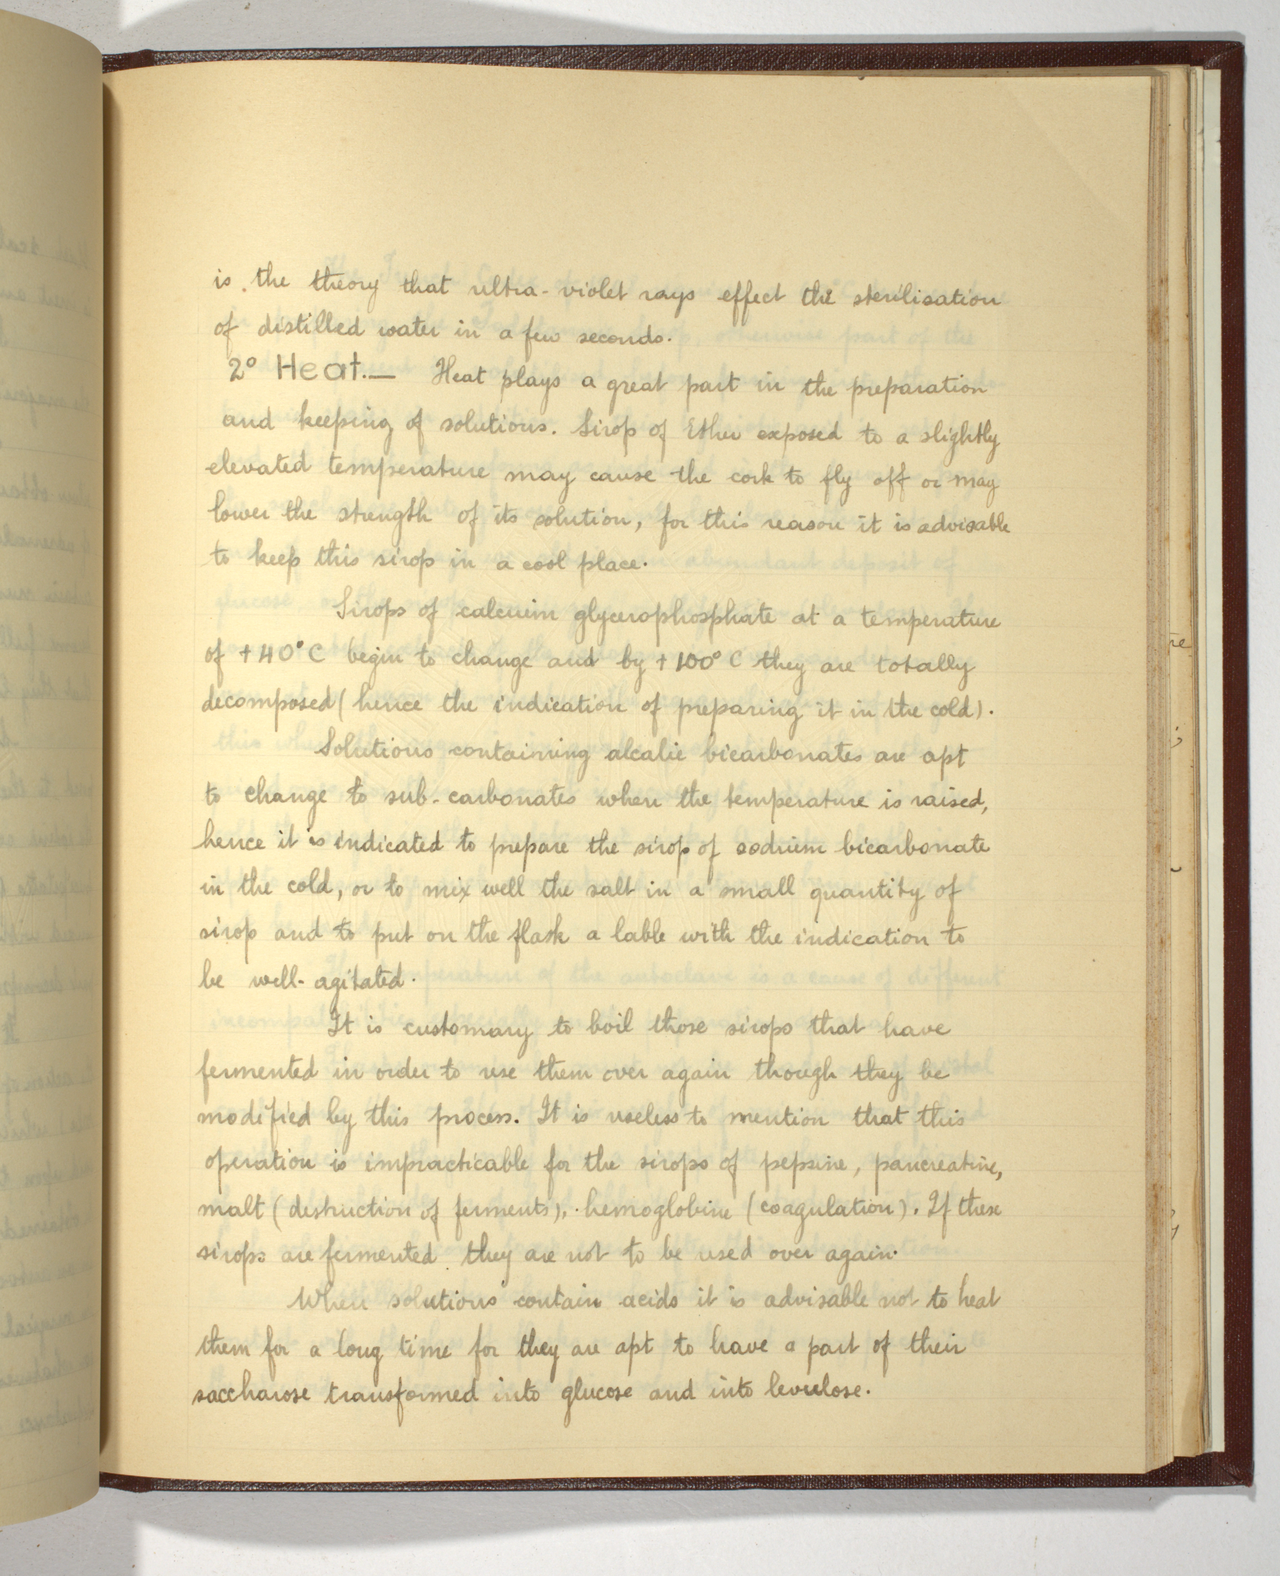 is the theory that ultra-violet rays effect the sterilisation
of distilled water in a few seconds.
2° Heat.— Heat plays a great part in the preparation
and keeping of solutions. Sirop of Ether exposed to a slightly
elevated temperature may cause the cork to fly off or may
lower the strength of its solution, for this reason it is advisable
to keep this sirop in a cool place.
Sirops of calcuim glycerophosphate at a temperature
of +40°C begin to change and by +100°C they are totally
decomposed (hence the indication of preparing it in the cold).
Solutions containing alcalic bicarbonates are apt
to change to sub-carbonates when the temperature is raised,
hence it is indicated to prepare the sirop of sodium bicarbonate
in the cold, or to mix well the salt in a small quantity of
sirop and to put on the flask a lable with the indication to
be well-agitated.
It is customary to boil those sirops that have
fermented in order to use them over again though they be
modified by this process. It is useless to mention that this
operation is impracticable for the sirops of pepsine, pancreatine,
malt (destruction of ferments), hemoglobine (coagulation). If these
sirops are fermented they are not to be used over again.
When solutions contain acids it is advisable not to heat
them for a long time for they are apt to have a part of their
saccharose transformed into glucose and into levulose.